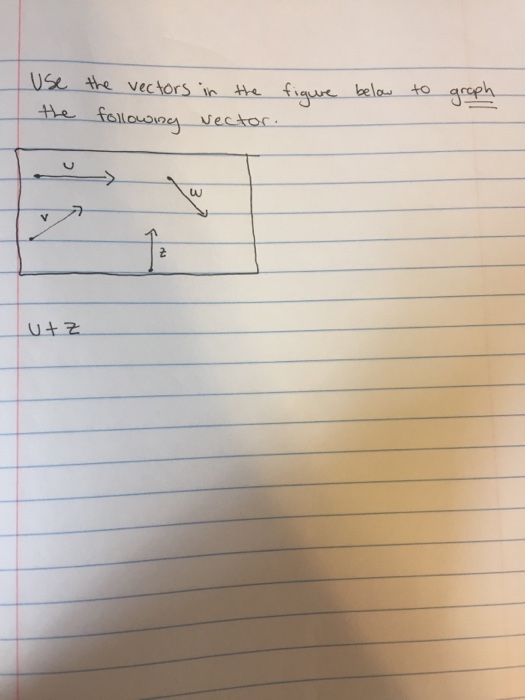 Use the vectors in the figure below to graph
the following vector.
U
W
V
Z
U + Z